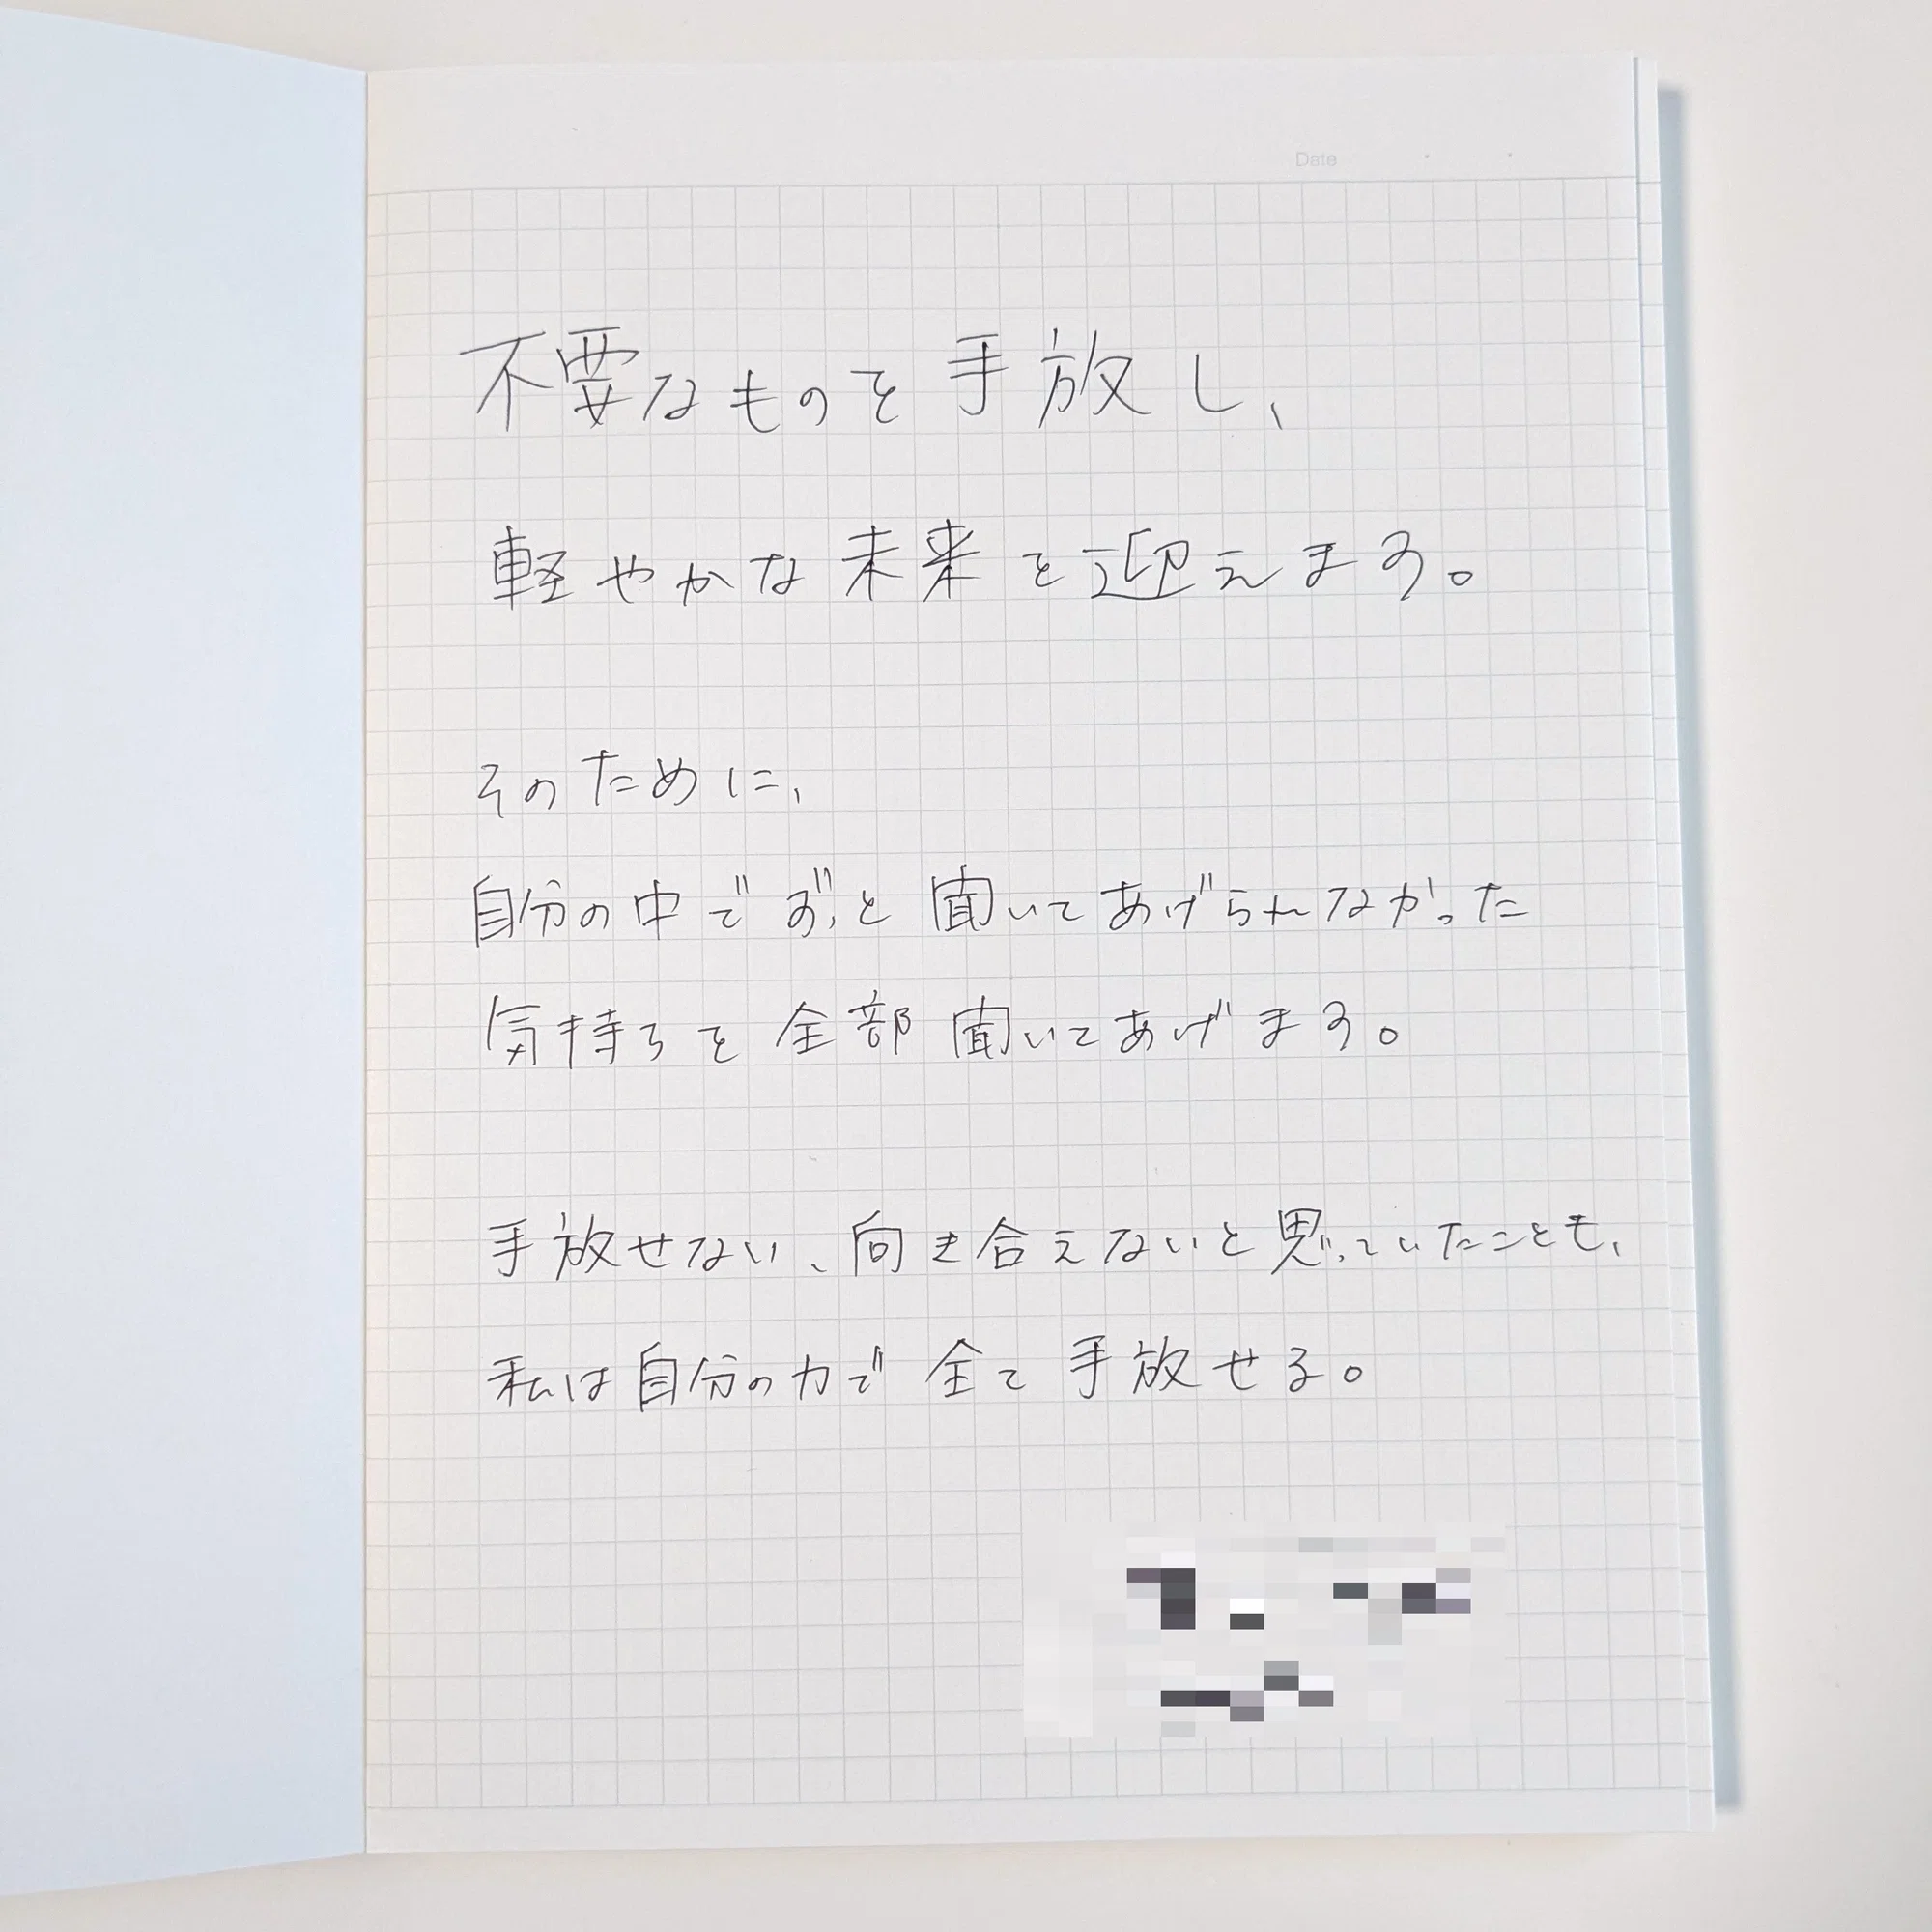 Date
不要なものを手放し、
軽やかな未来を迎えます。
そのために、
自分の中でずっと聞いてあげられなかった
気持ちを全部聞いてあげます。
手放せない、向き合えないと思っていたことも、
私は自分の力で全て手放せる。